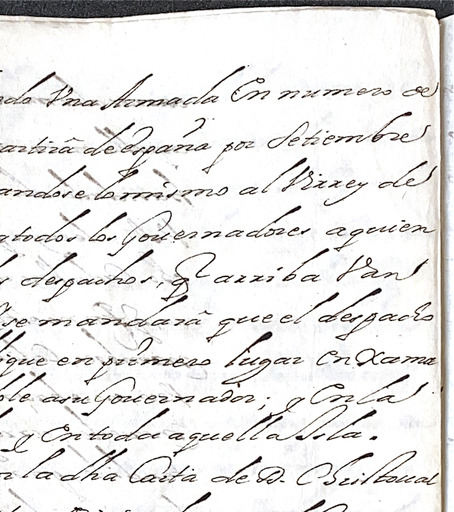 ndo Vna Armada En numero de
artirà de españa por Setiembre
andose lo mismo al Virrey de
atodos los Gouernadores aquien
s despachos, q̃ arriba Van
se mandarà que el despacho
ique en primero lugar en Xama
ble asu Gouernador; y En la
y En toda aquella Isla.
n la dha Carta de D. Christoual